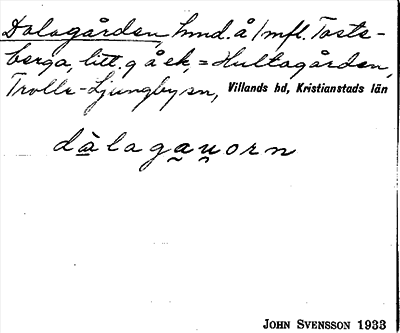 Dalagården, hmd. å 1 mfl. Tosteberga, litt. q å ek, = Hultagården,
Trolle-Ljungby sn, Villands hd, Kristianstads län
dàlagau̯orn
JOHN SVENSSON 1933